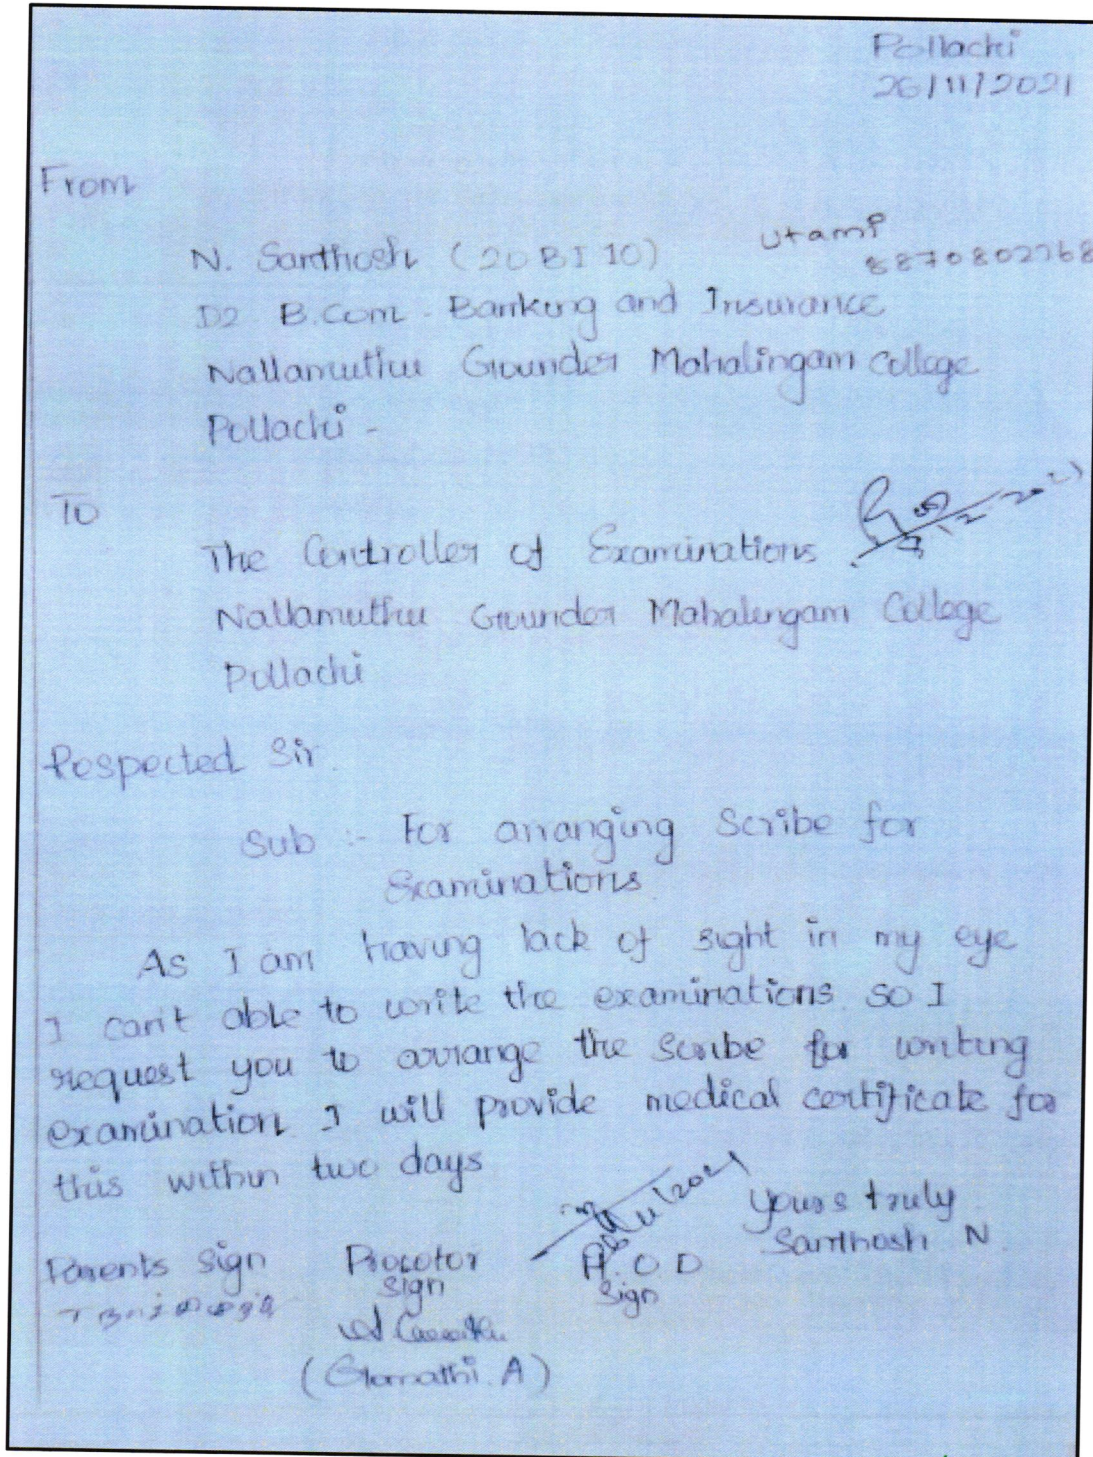 Pollachi
26/11/2021
From
N. Santhosh (20BI10)
D2 B.Com. Banking and Insurance
Nallamuthu Gounder Mahalingam College
Pollachi -
To
The Controller of Examinations
Nallamuthu Gounder Mahalingam College
Pollachi
Respected Sir.
Sub :- For arranging Scribe for
Examinations
As I am having lack of sight in my eye
I can't able to write the examinations. SO I
request you to arrange the scribe for writing
examination. I will provide medical certificate for
this within two days
Yours truly
Santhosh N.
Parents sign Procotor H.O.D
sign sign
(Gomathi. A)